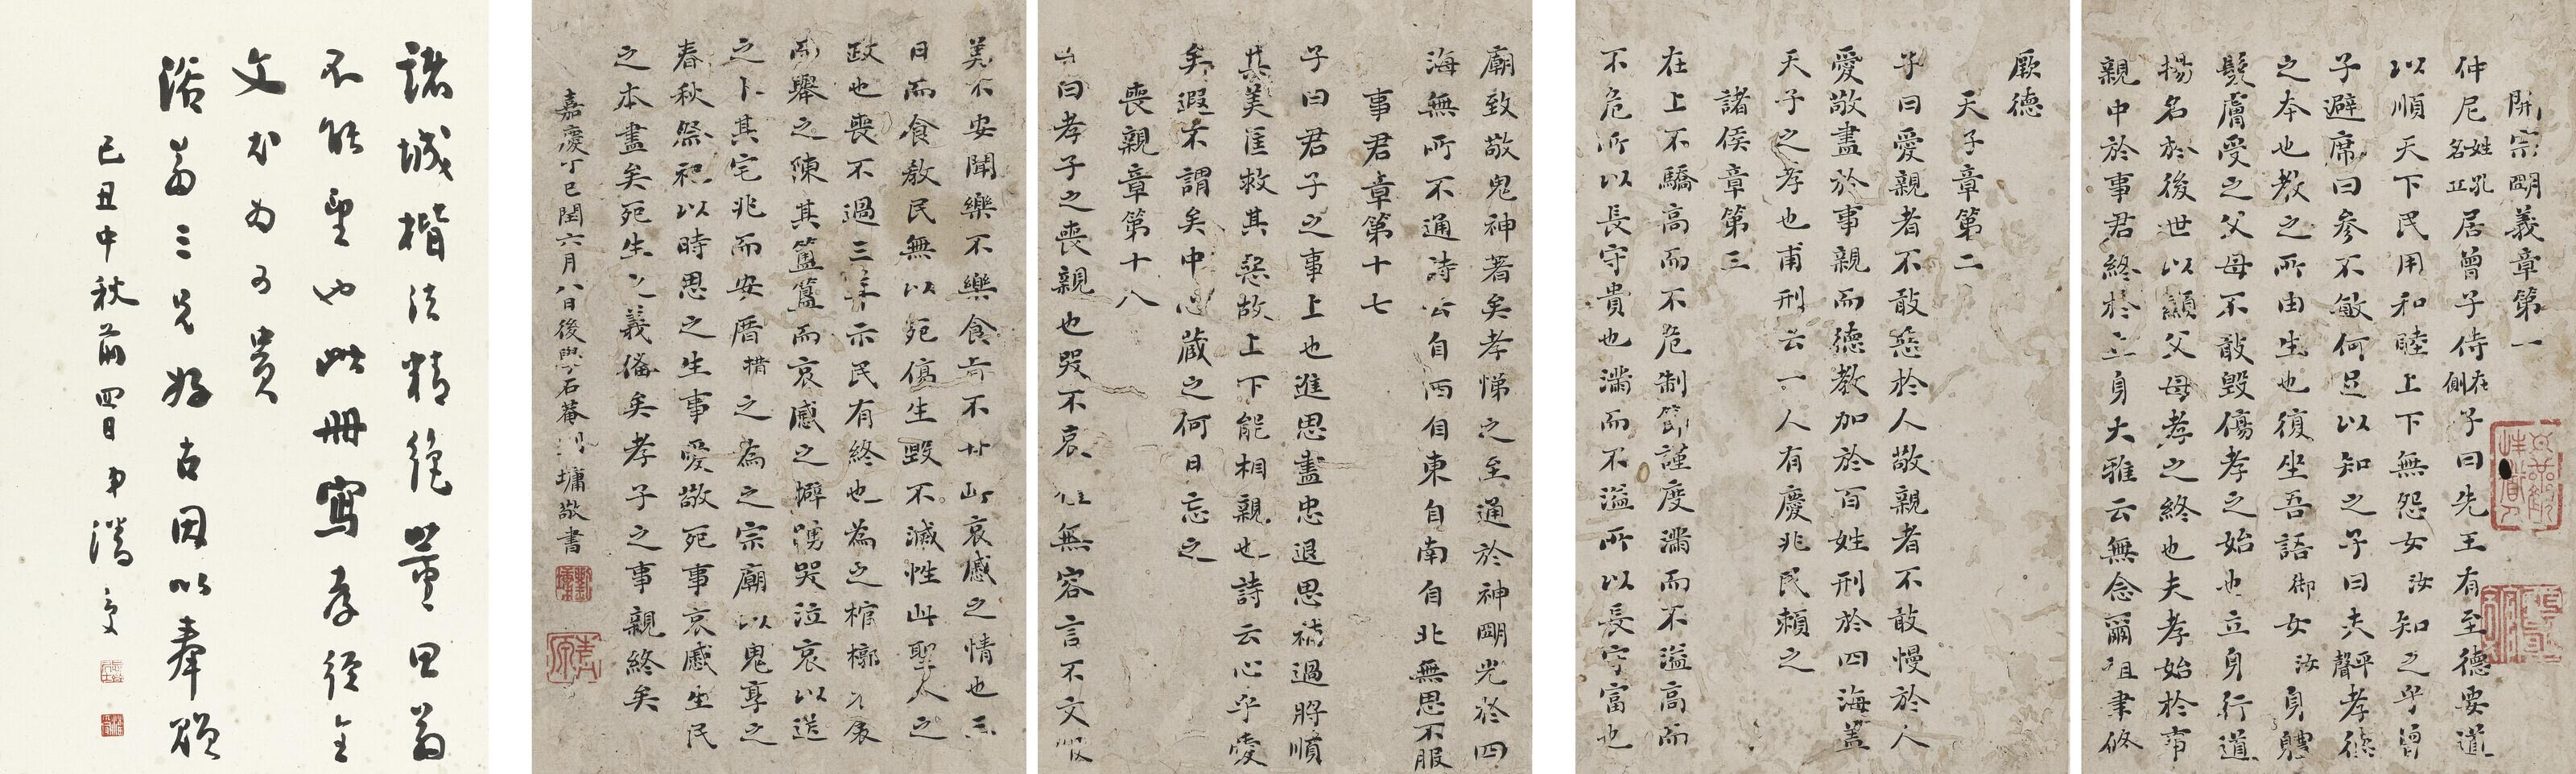 開宗朙義章第一
仲尼姓孔名丘居曾子侍在側子曰先王有至德要道
以順天下民用和睦上下無怨女汝知之乎曾
子避席曰參不敏何足以知之子曰夫平聲孝德
之本也教之所由生也復坐吾語御女汝身體
髮膚受之父母不敢毀傷孝之始也立身行道
揚名於後世以顯父母孝之終也夫孝始於事
親中於事君終於立身大雅云無念爾祖聿修
厥德
天子章第二
子曰愛親者不敢惡於人敬親者不敢慢於人
愛敬盡於事親而德教加於百姓刑於四海蓋
天子之孝也甫刑云一人有慶兆民賴之
諸侯章第三
在上不驕高而不危制節謹度滿而不溢高而
不危所以長守貴也滿而不溢所以長守富也
廟致敬鬼神著矣孝悌之至通於神朙光於四
海無所不通詩云自西自東自南自北無思不服
事君章第十七
子曰君子之事上也進思盡忠退思補過將順
其美匡救其惡故上下能相親也詩云心乎愛
矣遐不謂矣中心藏之何日忘之
喪親章第十八
子曰孝子之喪親也哭不哀禮無容言不文服
美不安聞樂不樂食旨不甘此哀慼之情也三
日而食教民無以死傷生毀不滅性此聖人之
政也喪不過三年示民有終也為之棺槨衣衾
而舉之陳其簠簋而哀慼之擗踴哭泣哀以送
之卜其宅兆而安厝措之為之宗廟以鬼享之
春秋祭祀以時思之生事愛敬死事哀慼生民
之本盡矣死生之義備矣孝子之事親終矣
嘉慶丁巳閏六月八日後學石菴劉墉敬書
諸城楷法精絕董思翁
不能望也此冊寫孝經全
文尤為可貴
浴萬三兄好古因以奉貽
己丑中秋前四日弟潘受